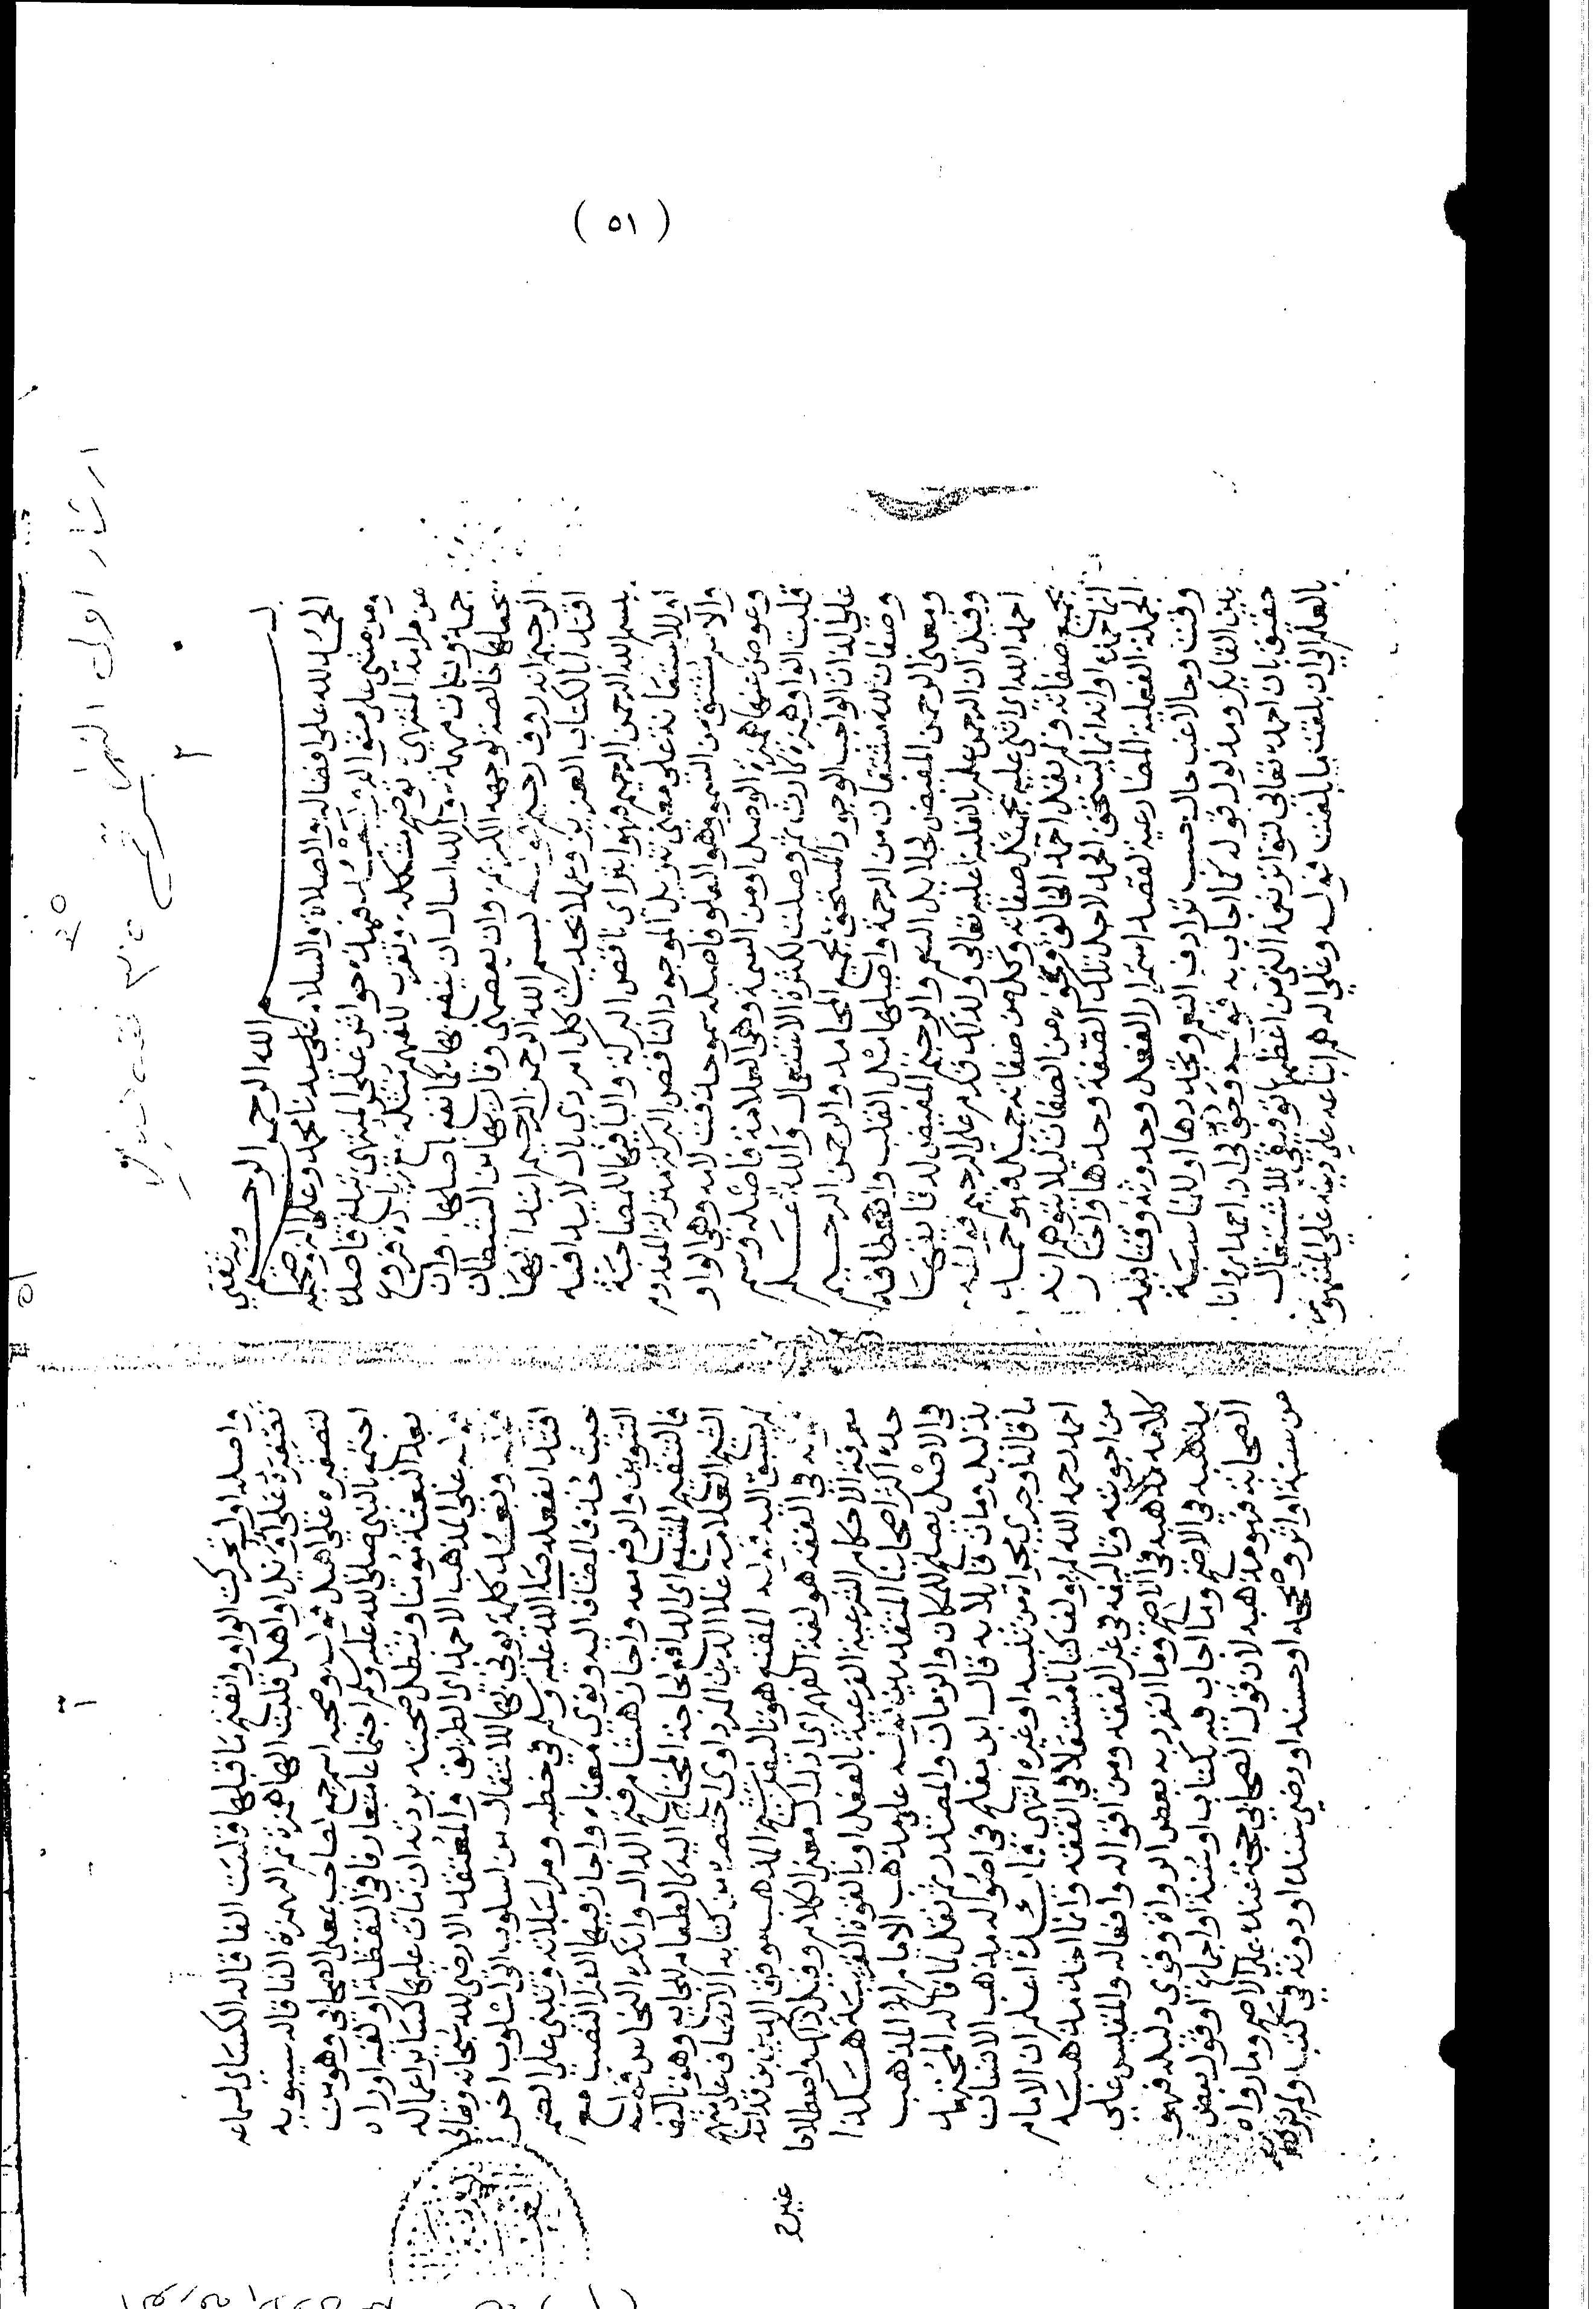 ( ٥١ )
٥١
٢
بسم الله الرحمن الرحيم وبه ثقتي
الحمد لله على افضاله والصلاة والسلام على سيدنا محمد وعلى اله وصحبه
ومن مشى على منواله وبعد فهذه حواش على المنتهى تبلغ قاصده
من مرامه المنتهى توضح مشكله وتقرب للفهم بزيادة فروع
جمة وتتمات مهمة والله اسال ان ينفع بها كما نفع باصلها وان
يجعلها خالصة لوجهه الكريم وان يعصمني وقاريها من الشيطان
الرجيم انه روف رحيم قوله بسم الله الرحمن الرحيم ابتدا بها
اقتدا بالكتاب العزيز وعملا بحديث كل امر ذي بال لا يبدا فيه
ببسم الله الرحمن الرحيم فهو ابتر اي ناقص البركة والبا فيها للمصاحبة
او للاستعانة على معنى تنزيل الموجود الناقص البركة منزلة المعدوم
والاسم مشتق من السمو وهو العلو فاصله سمو حذفت لامه وهي الواو
وعوض عنها همزة الوصل او من السمة وهي العلامة فاصله وسم
قلبت الواو همزة ثم وصلت لكثرة الاستعمال والله علم
على الذات الواجب الوجود المستحق لجميع المحامد والرحمن الرحيم
وصفان لله مشتقان من الرحمة واصلها مثل القلب وانعطافه
ومعنى الرحمن المفيض لجلايل النعم والرحيم المفيض لدقايقها
وقيل ان الرحمن علم بالغلبة عليه تعالى ولذلك قدم على الرحيم قوله
احمد الله اي اثني عليه بجميل صفاته وكل من صفاته جميل فهو حمد
بجميع صفاته ولم يقل احمد الخالق ونحوه من الصفات ليلا يتوهم انه
انما حمده او انه انما يستحق الحمد لاجل تلك الصفة وحدها واختار
الجملة الفعلية المضارعية لقصد استمرار الفعل وحدوثه وقتا بعد
وقت وحالا غب حال حسب ترادف النعم وتجددها او للمناسبة
بين القايل ومدلول قوله كما اجاب به قوله وحق لي ان احمد اي وانا
حقيق بان احمده تعالى لتواتر نعمه التي من اعظمها توفيقي للاشتغال
بالعلم الى ان بلغت ما بلغت قوله وعلى اله هم اتباعه على دينه على المنصوص
واصله اول تحركت الواو وانفتح ما قبلها قلبت الفا قاله الكسائ لسماعه
تصغيره على اويل او اهل قلبت الها همزة ثم الهمزة الفا قاله سيبويه
لتصغيره على اهيل قوله وصحبه اسم جمع لصاحب بمعنى الصحابي وهو من
اجتمع بالنبي صلى الله عليه وسلم اجتماعا متعارفا في اليقظة او لقيه او راه
بعد البعثة مومنا وتبطل صحبته بردته ان مات عليها كساير اعماله
قوله على المذهب الاحمد اي الطريق والمعتقد الارضى لله سبحانه وتعالى
قوله وبعد كلمة يوتى بها للانتقال من اسلوب الى اسلوب اخر
اقتدا بفعله صلى الله عليه وسلم في خطبه ومراسلاته وتبنى على الضم
حيث حذف المضاف اليه ونوي معناه واجاز فيها الفرا النصب مع
التنوين والرفع معه واجاز هشام فتح الدال وانكره النحاس قوله
فالتنقيح المشبع اي الدافع لحاجة المحتاج اليه كالطعام للجايع وهو تاليف
الشيخ العلامة علا الدين المرداوي اختصره من كتابه الانصاف
لم يسبق اليه قوله المقنع هو تاليف شيخ المذهب موفق الدين بن قدامة
قوله في الفقه هو لغة الفهم اي ادراك معنى الكلام واصطلاحا
معرفة الاحكام الشرعية الفرعية بالفعل او بالقوة القريبة هكذا
حده اكثر اصحابنا المتقدمين قوله على مذهب الامام الخ المذهب
في الاصل يصلح للمكان والزمان والمصدر ثم نقل لما قاله المجتهد
بدليل ومات قايلا به قال ابن مفلح في اصوله مذهب الانسان
ما قاله او جرى مجراه من تنبيه او غيره انتهى فايدة اعلم ان الامام
احمد رحمه الله لم يولف كتابا مستقلا في الفقه وانما اخذ مذهبه
من اجوبته وتاليفه في غير الفقه ومن اقواله وافعاله والمقيس على
كلامه مذهبه في الاصح وما انفرد به بعض الرواة وقوي دليله فهو
مذهبه في الاصح وما اجاب فيه بكتاب او سنة او اجماع او قول بعض
الصحابة فهو مذهبه لان قول الصحابي حجة عنده على الاصح وما رواه
من سنة او اثر وصححه او حسنه او رضي سنده او دونه في كتبه ولم يرده
غيره